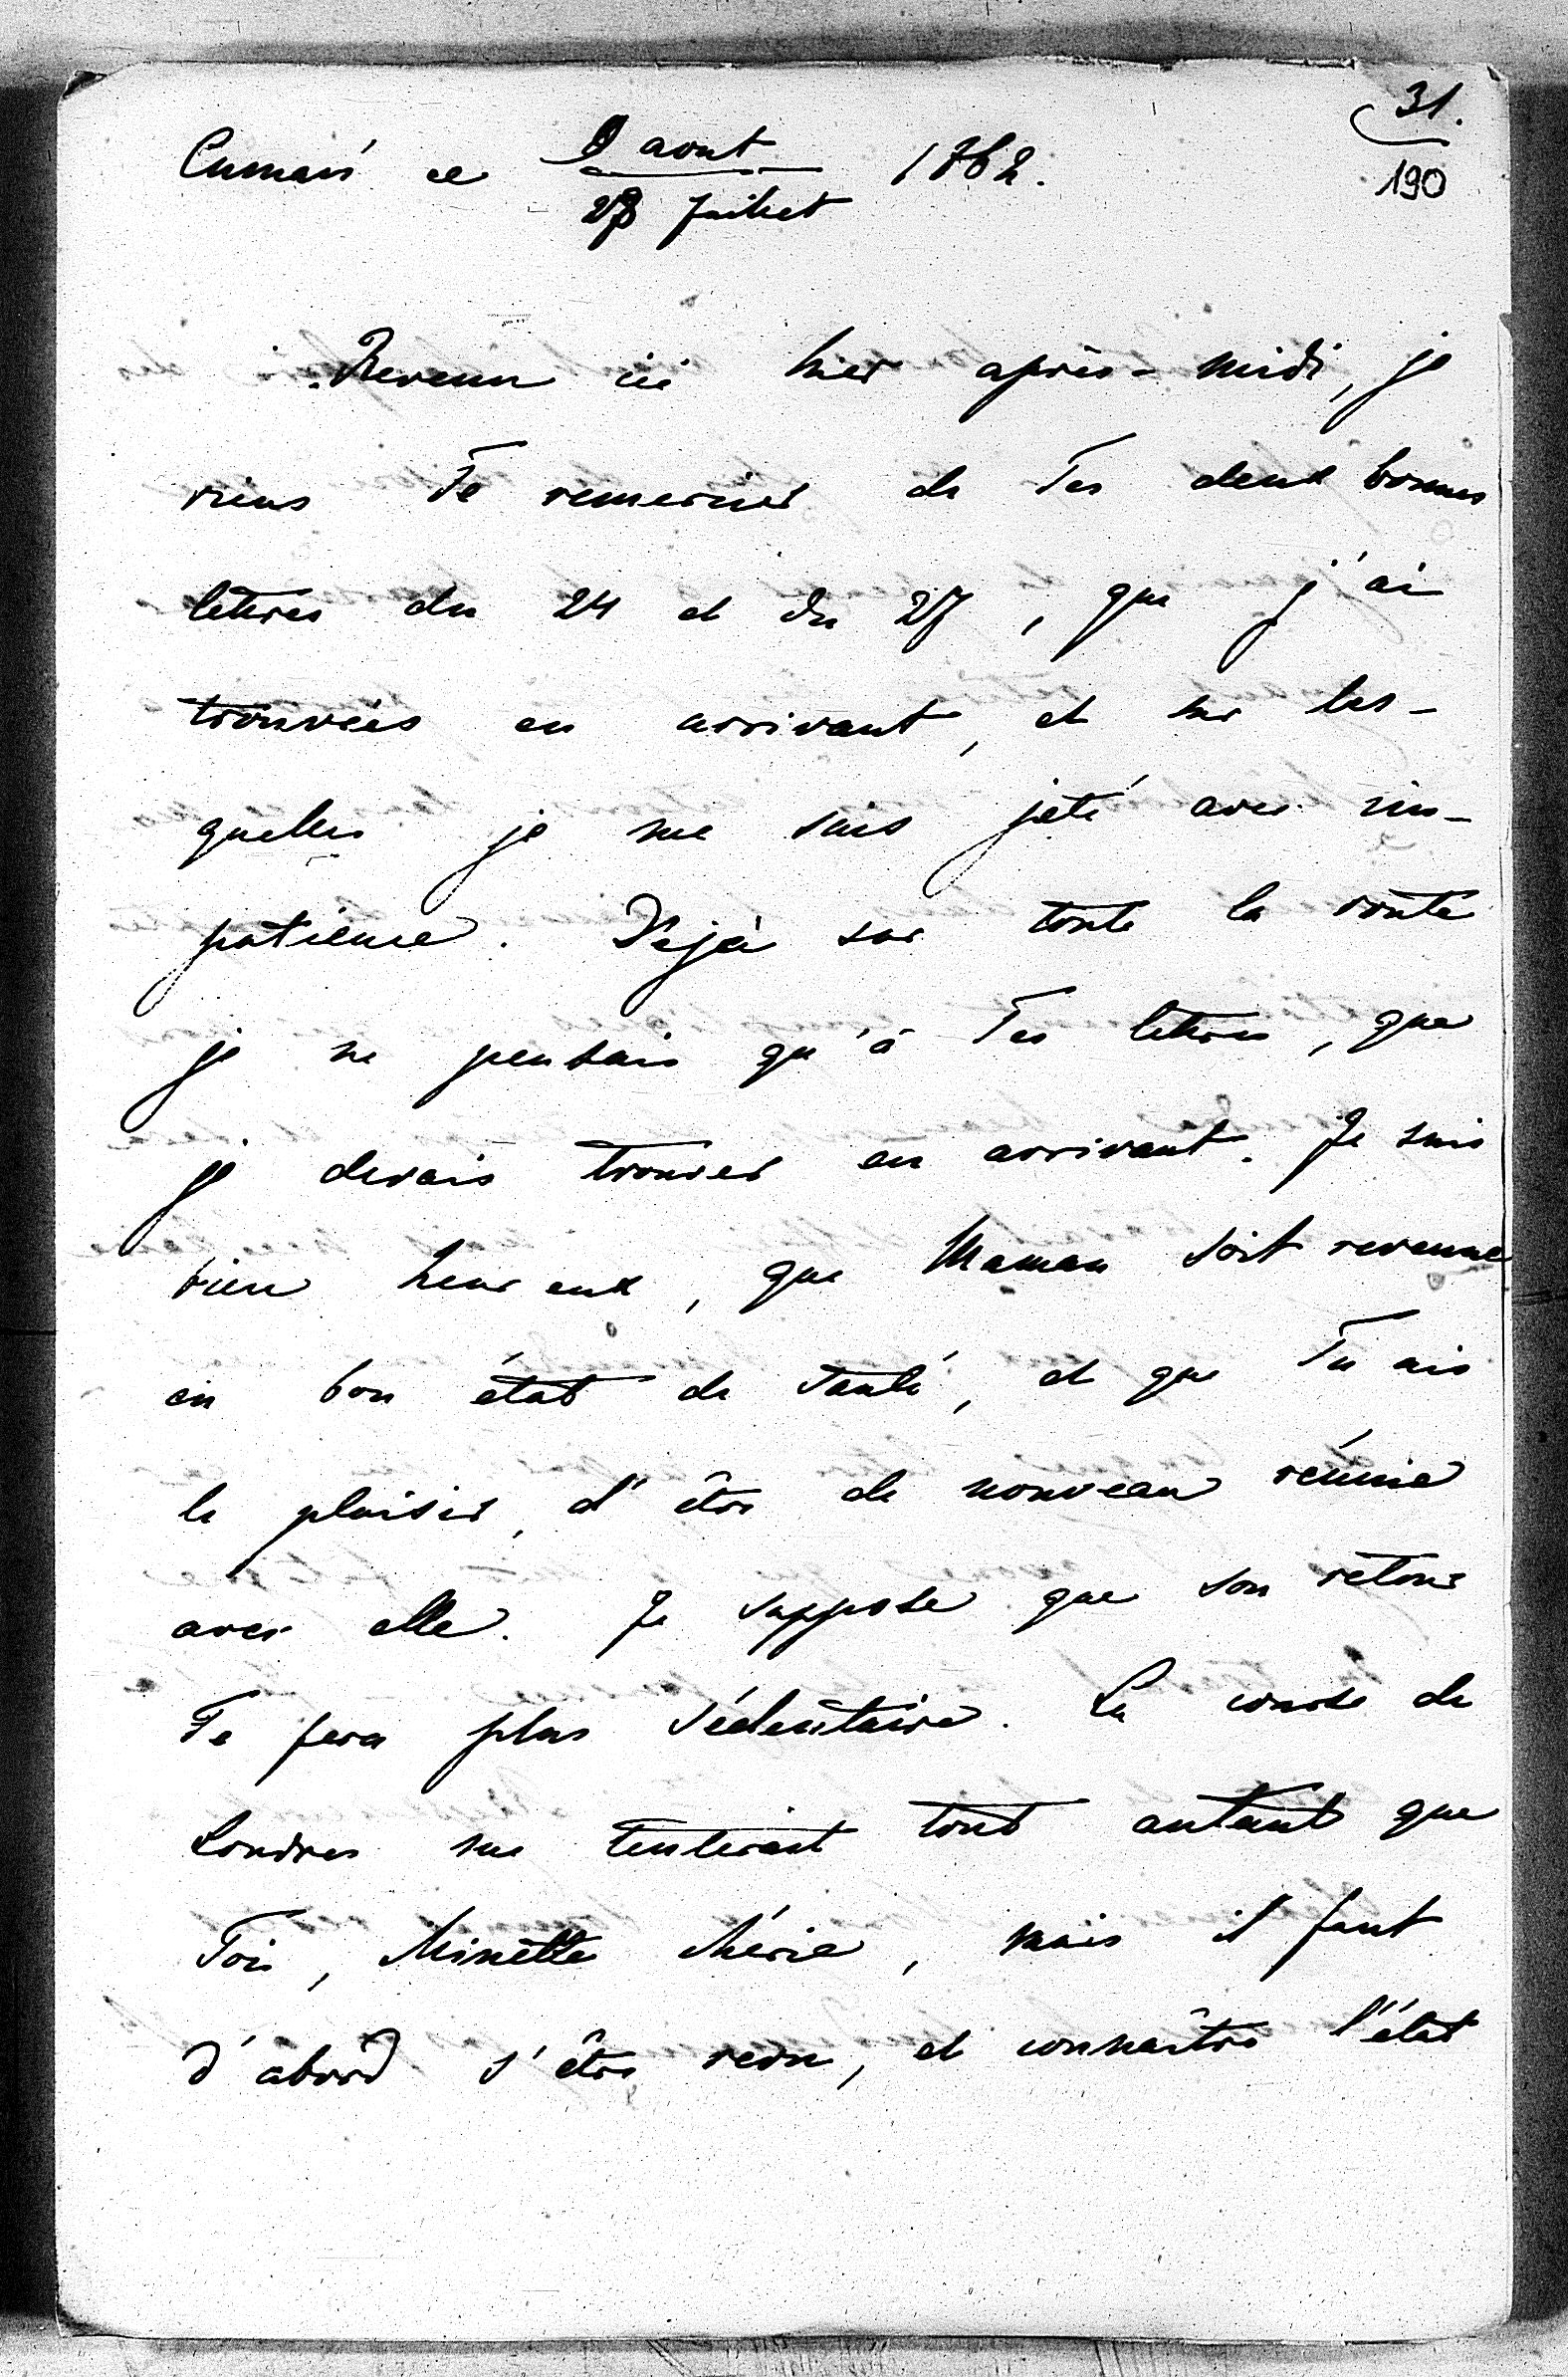 31.
190
ce 9 aout 1862.
28 Juillet
Revenu ici hier après-midi, je
viens Te remercier de Tes deux bonnes
lettres du 24 et du 27, que j'ai
trouvées en arrivant, et sur les-
quelles je me suis jeté avec im-
patience. Déjà sur toute la route
je ne pensais qu'à Tes lettres, que
je devais trouver en arrivant. Je suis
bien heureux, que Maman soit revenue
en bon état de santé, et que Tu ais
le plaisir, d'être de nouveau réunie
avec elle. Je suppose que son retour
Te fera plus sédentaire. La course de
Londres me tenterait tout autant que
Toi, Minette chérie, mais il faut
d'abord s'être revu, et connaître l'état